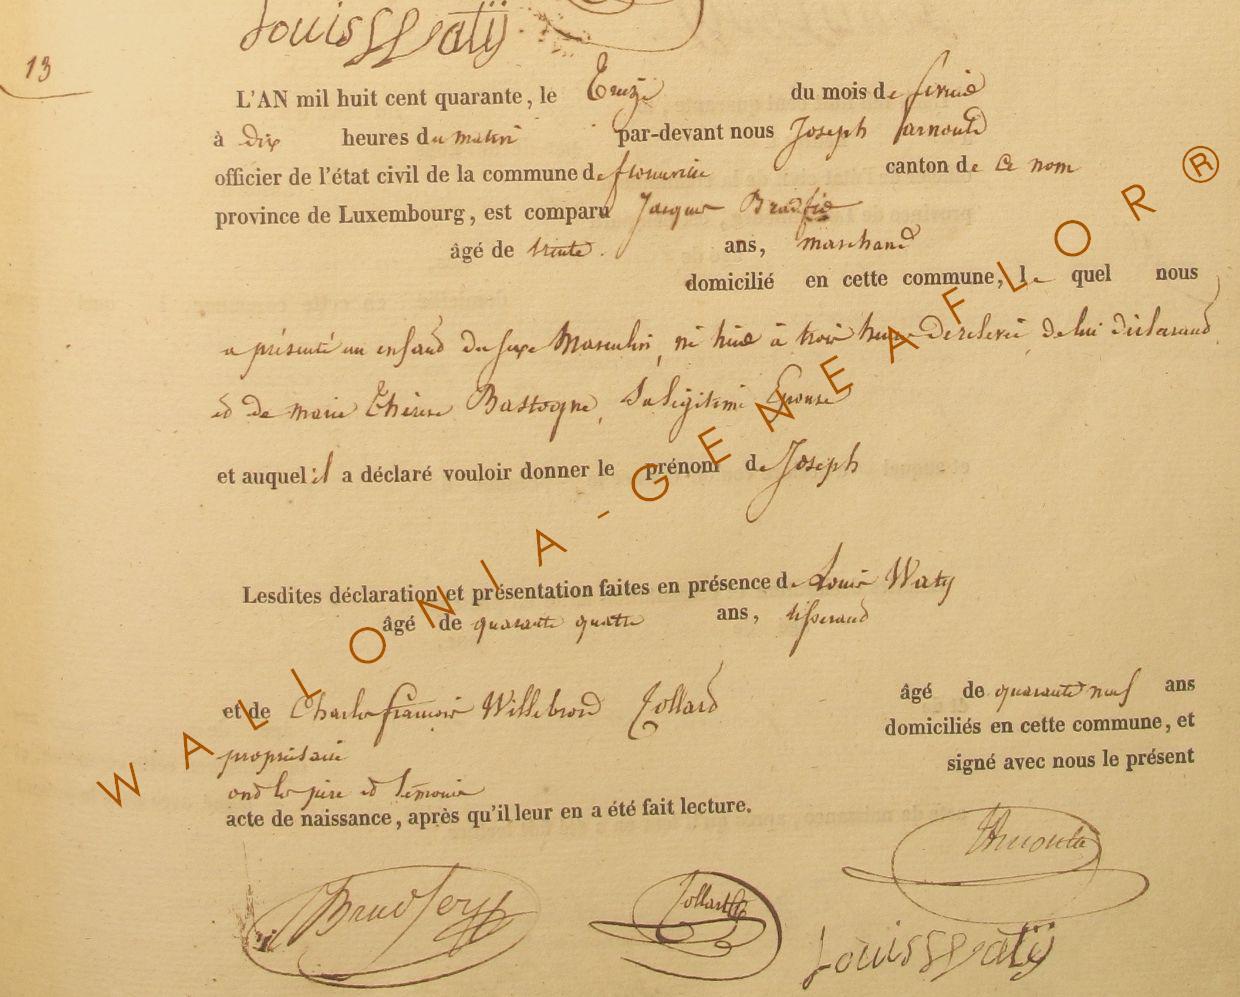 Louis Watÿ
13
L'AN mil huit cent quarante, le Treize du mois de fevrier
à dix heures du matin par-devant nous Joseph arnould
officier de l'état civil de la commune de canton de ce nom
province de Luxembourg, est comparu Jacques
âgé de trente ans, marchand
domicilié en cette commune, le quel nous
a présenté un enfant du sexe Masculin, né hier à trois heures de relevée, de lui déclarant
et de marie Thérèse Bastogne, Sa légitime Epouse
et auquel il a déclaré vouloir donner le prénom de Joseph
Lesdites déclaration et présentation faites en présence de Louis Waty
âgé de quarante quatre ans, tisserand
et de Charles françois Willebrord Collard âgé de quarante neuf ans
propriétaire domiciliés en cette commune, et
signé avec nous le présent
ont les père et témoins
acte de naissance, après qu'il leur en a été fait lecture.
Collard
Louis Watÿ
WALLONIA-GENEAFLOR®